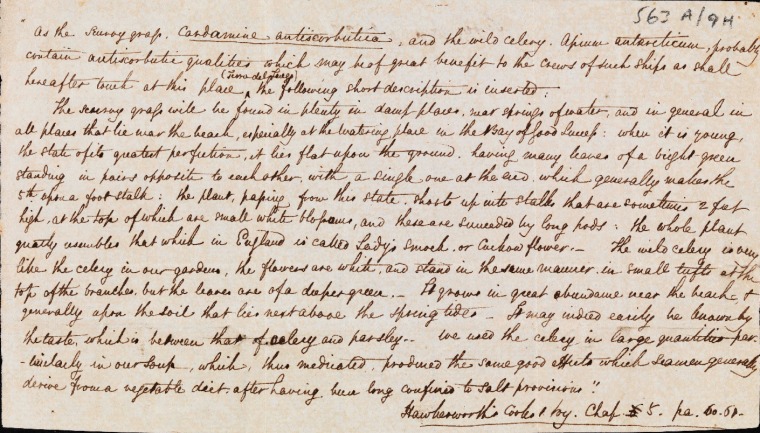 563 A/9H
"As the scurvy grass. Cardamine antiscorbutica, and the wild celery. Apium antarcticum, probably
contain antiscorbutic qualities which may be of great benefit to the crews of such ships as shall
(Tierra del Fuego)
hereafter touch at this place ^ the following short description is inserted:
The scurvy grass will be found in plenty in damp places, near springs of water, and in general in
all places that lie near the beach, especially at the watering place in the Bay of Good Success: when it is young,
the state of its greatest perfection, it lies flat upon the ground. having many leaves of a bright green
standing in pairs opposite to each other, with a single one at the end, which generally makes the
5th upon a foot stalk: the plant, passing from this state, shoots up into stalks that are sometimes 2 feet
high, at the top of which are small white blossoms, and these are succeeded by long pods: the whole plant
greatly resembles that which in England is called Lady's Smock. or Cuckow flower.— The wild celery is very
like the celery in our gardens, the flowers are white, and stand in the same manner, in small tufts at the
top of the branches. but the leaves are of a deeper green.— It grows in great abundance near the beach, &
generally upon the soil that lies next above the spring tides— It may indeed easily be known by
the taste, which is between that of celery and parsley.— We used the celery in large quantities par-
-ticularly in our soup, which, thus medicated, produced the same good effects which seamen generally
derive from a vegetable diet, after having been long confined to salt provisions."
Hawkesworth's Cooks 1 Voy. Chap. 5. pa. 60.61.